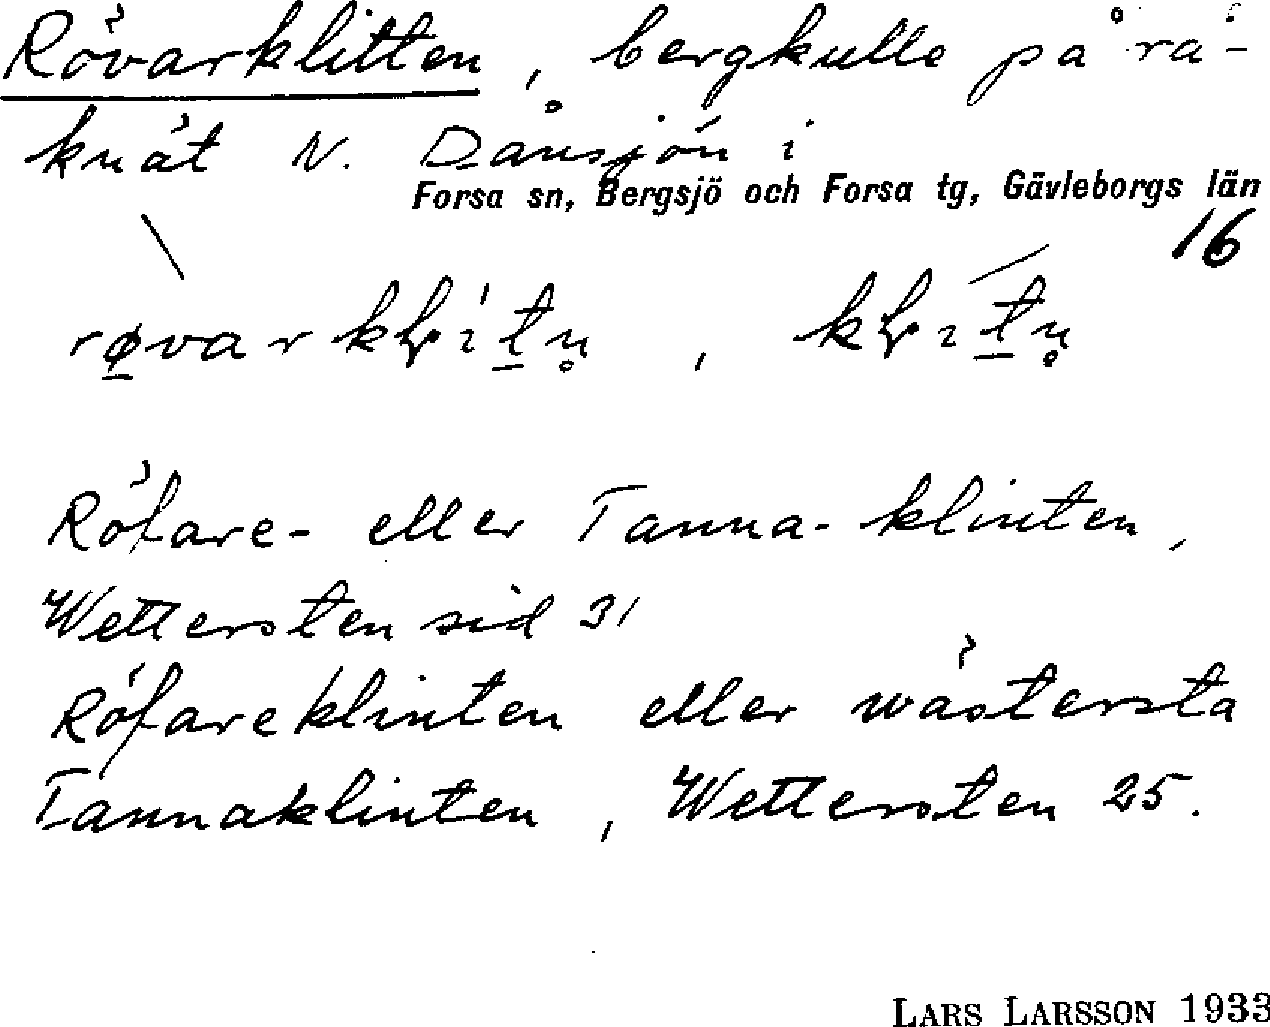 Rövarklitten, bergkulle på rå-
knät N. Dånsjön i
Forsa sn, Bergsjö och Forsa tg, Gävleborgs län
16
Röfare- eller Tanna-klinten,
Wettersten sid 31
Röfareklinten eller wästersta
Tannaklinten, Wettersten 25.
LARS LARSSON 1933